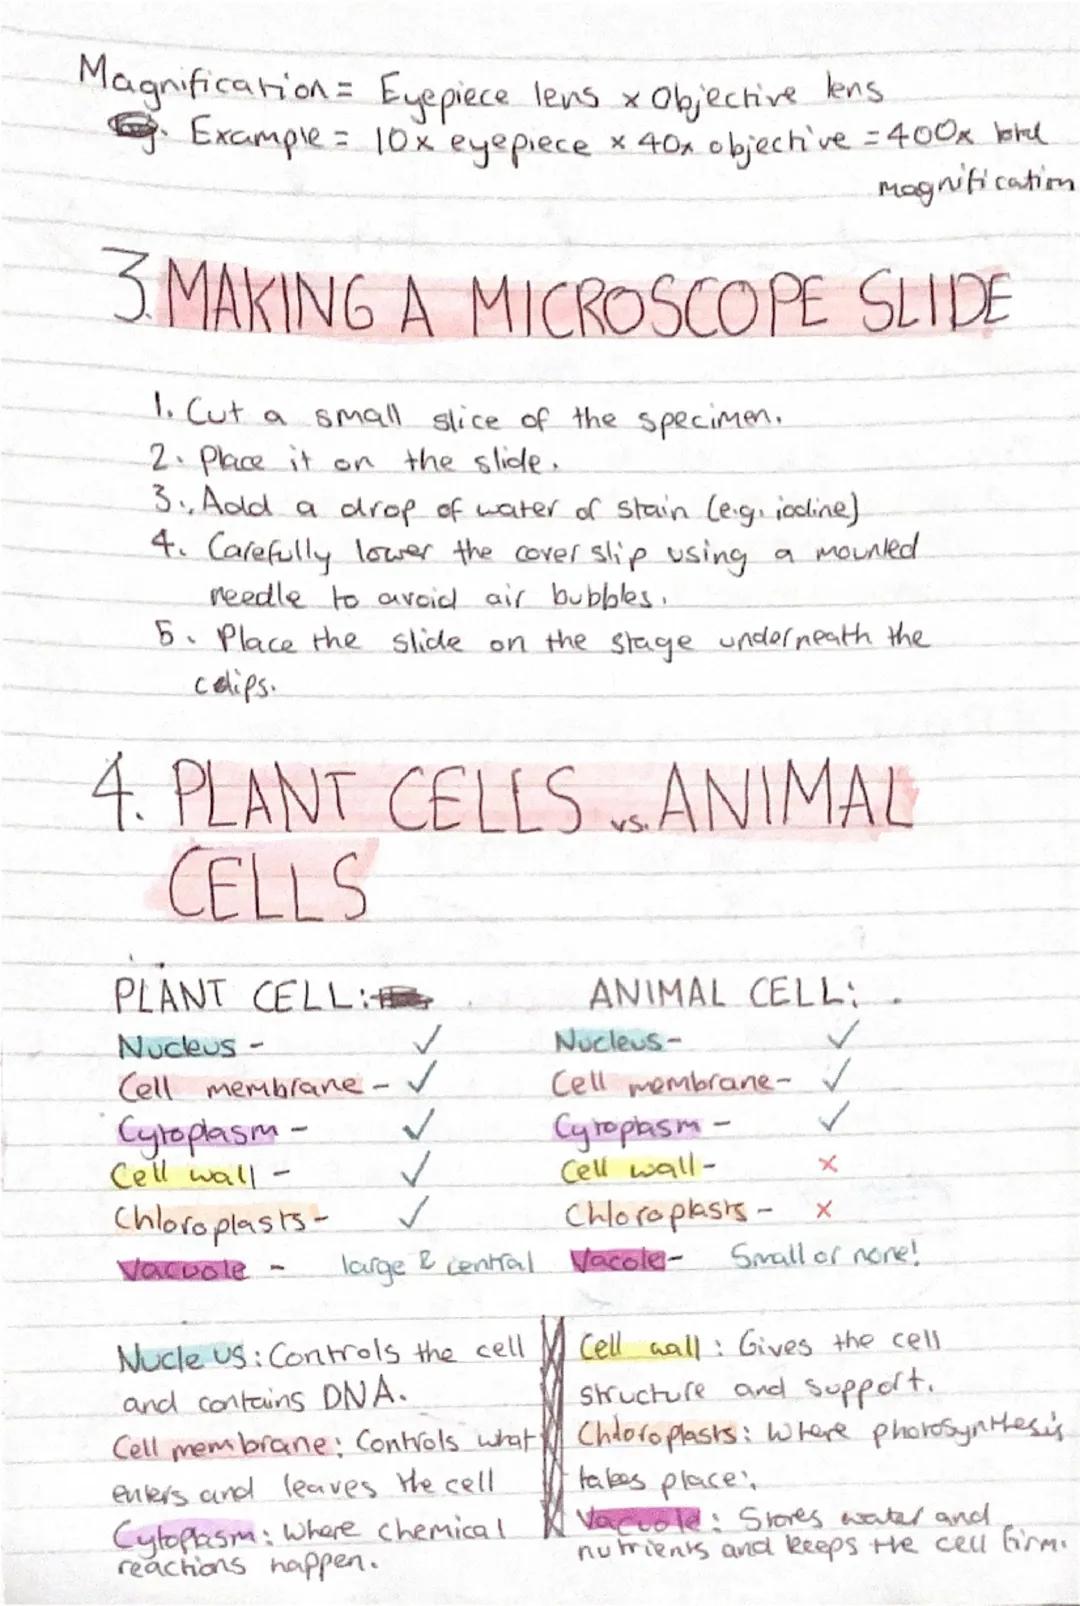 Magnification = Eyepiece lens x Objective lens
Example = 10x eyepiece x 40x objective = 400x total
magnification
3. MAKING A MICROSCOPE SLIDE
1. Cut a small slice of the specimen.
2. Place it on the slide.
3. Add a drop of water of stain (e.g. iodine)
4. Carefully lower the cover slip using a mounted
needle to avoid air bubbles.
5. Place the slide on the stage underneath the
clips.
4. PLANT CELLS vs. ANIMAL
CELLS
PLANT CELL: ANIMAL CELL:
Nucleus - ✓ Nucleus - ✓
Cell membrane - ✓ Cell membrane - ✓
Cytoplasm - ✓ Cytoplasm - ✓
Cell wall - ✓ Cell wall - ×
Chloroplasts - ✓ Chloroplasts - ×
Vacuole - large & central Vacole - Small or none!
Nucleus: Controls the cell
and contains DNA.
Cell membrane: Controls what
enters and leaves the cell
Cytoplasm: Where chemical
reactions happen.
Cell wall: Gives the cell
structure and support.
Chloroplasts: Where photosynthesis
takes place.
Vacuole: Stores water and
nutrients and keeps the cell firm.